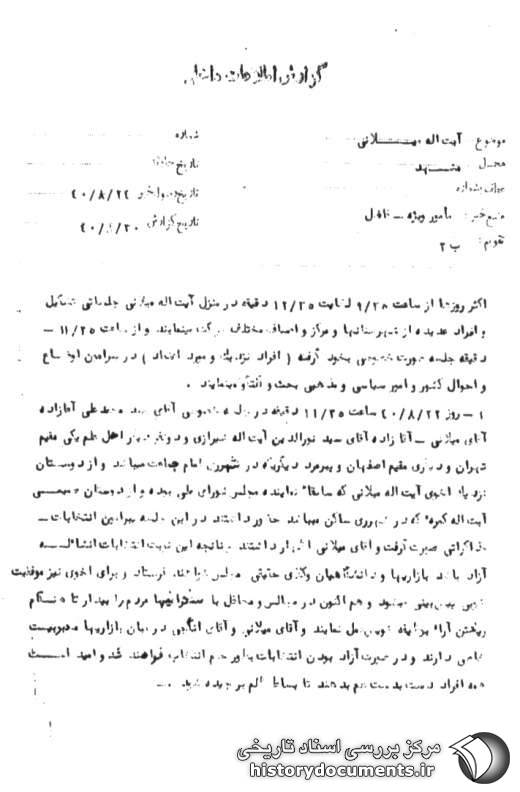 گزارش اطلاعات داخلی
موضوع: آیت اله میلانی
شماره
محل: مشهد
تاریخ حادثه
عطف بشماره
تاریخ وصول خبر ۴۰/۸/۲۲
منبع خبر: مأمور ویژه – نافل
تاریخ گزارش ۴۰/۸/۳۰
تقویم: ب ۲
اکثر روزها از ساعت ۹/۳۰ لغایت ۱۲/۳۵ دقیقه در منزل آیت اله میلانی جلساتی تشکیل
و افراد عدیده از شهرستانها و مرکز و اصناف مختلف شرکت مینمایند و از ساعت ۱۱/۳۵ –
دقیقه جلسه صورت خصوصی بخود گرفته ( افراد نزدیك و مورد اعتماد ) در پیرامون اوضاع
و احوال کشور و امور سیاسی و مذهبی بحث و گفتگو مینمایند .
۱ – روز ۴۰/۸/۲۲ ساعت ۱۱/۳۵ دقیقه در جلسه خصوصی آقای سید محمدعلی آقازاده
آقای میلانی – آقا زاده آقای سید نورالدین آیت اله شیرازی و دو نفر دیگر اهل علم یکی مقیم
تهران و دیگری مقیم اصفهان و پیرمرد دیگری که در شهرری امام جماعت میباشد و از دوستان
نزدیك اخوی آیت اله میلانی که سابقاً نماینده مجلس شورای ملی بوده و از دوستان صمیمی
آیت اله کمره که در شهرری ساکن میباشد حضور داشتند در این جلسه پیرامون انتخابات –
مذاکراتی صورت گرفت و آقای میلانی اظهار داشتند چنانچه این نوبت انتخابات انشااله
آزاد باشد بازاریها و دانشگاهیان وکلای حقیقی بمجلس خواهند فرستاد و برای اخوی نیز موفقیت
خوبی پیش بینی میشود و هم اکنون در مجالس و محافل با سخنرانیها مردم را بیدار تا هنگام
ریختن آراء بوظیفه خویش عمل نمایند و آقای میلانی و آقای انگجی در میان بازاریها محبوبیت
خاصی دارند و در صورت آزاد بودن انتخابات بطور حتم انتخاب خواهند شد و امید است
همه افراد دست بدست هم بدهند تا بساط ظلم برچیده شود . –
مرکز بررسی اسناد تاریخی
historydocuments.ir